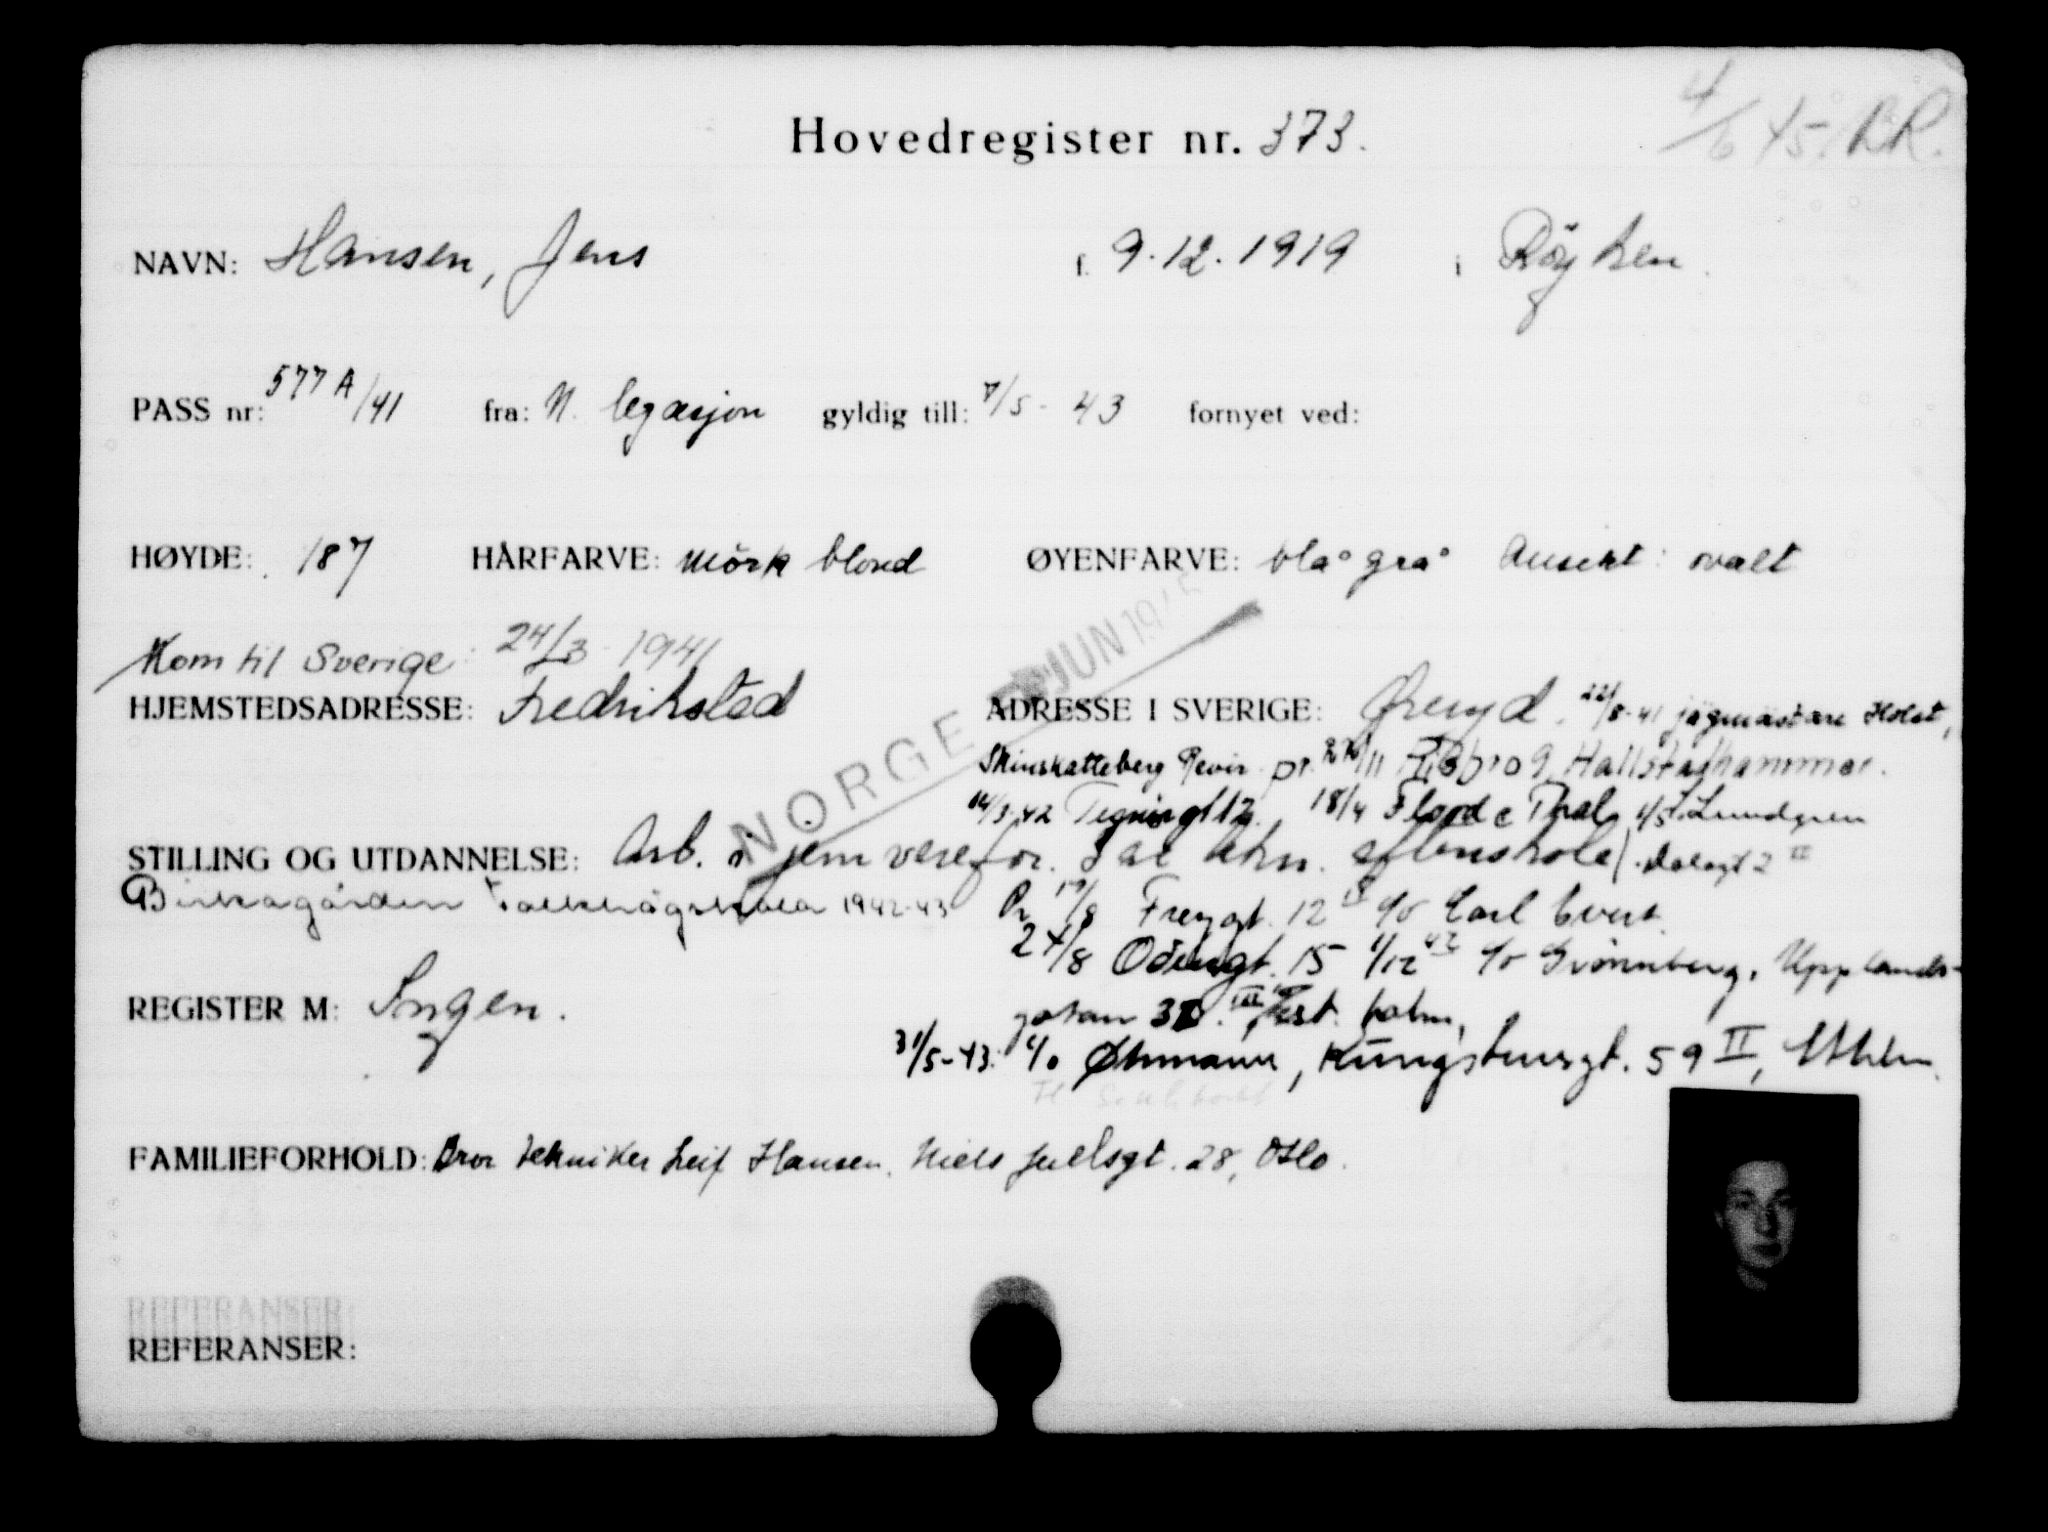 4/6 45. RR.
Hovedregister nr. 373.
NAVN: Hansen, Jens f. 9.12.1919 i Röyken.
PASS nr: 577 A/41 fra: N. legasjon gyldig till: 7/5-43 fornyet ved:
HØYDE: 187 HÅRFARVE: mörk blond ØYENFARVE: blågrå Ansikt: ovalt
Kom til Sverige: 24/3-1941
NORGE JUN 1945
HJEMSTEDSADRESSE: Fredrikstad ADRESSE I SVERIGE: Øreryd. 22/8-41 jägmästare Holst,
Skinskatteberg Revir pr. Hallstahammar.
14/3-42 18/4 1/5 Lundgren
STILLING OG UTDANNELSE: Arb. i jernvarefor. aftenskole Dalagt 2 II
Birkagården Folkhögskola 1942-43 Pr 17/8 Freygt. 12 c/o Carl Evert
24/8 Odengt. 15 1/12 42 c/o Grönnberg, Upplands-
gatan III
REGISTER M: Ingen.
31/5-43: c/o Øhmann, Kungstensgt. 59 II, Sthlm.
FAMILIEFORHOLD: Bror tekniker Leif Hansen, Niels Juelsgt. 28, Oslo.
REFERANSER:
REFERANSER: